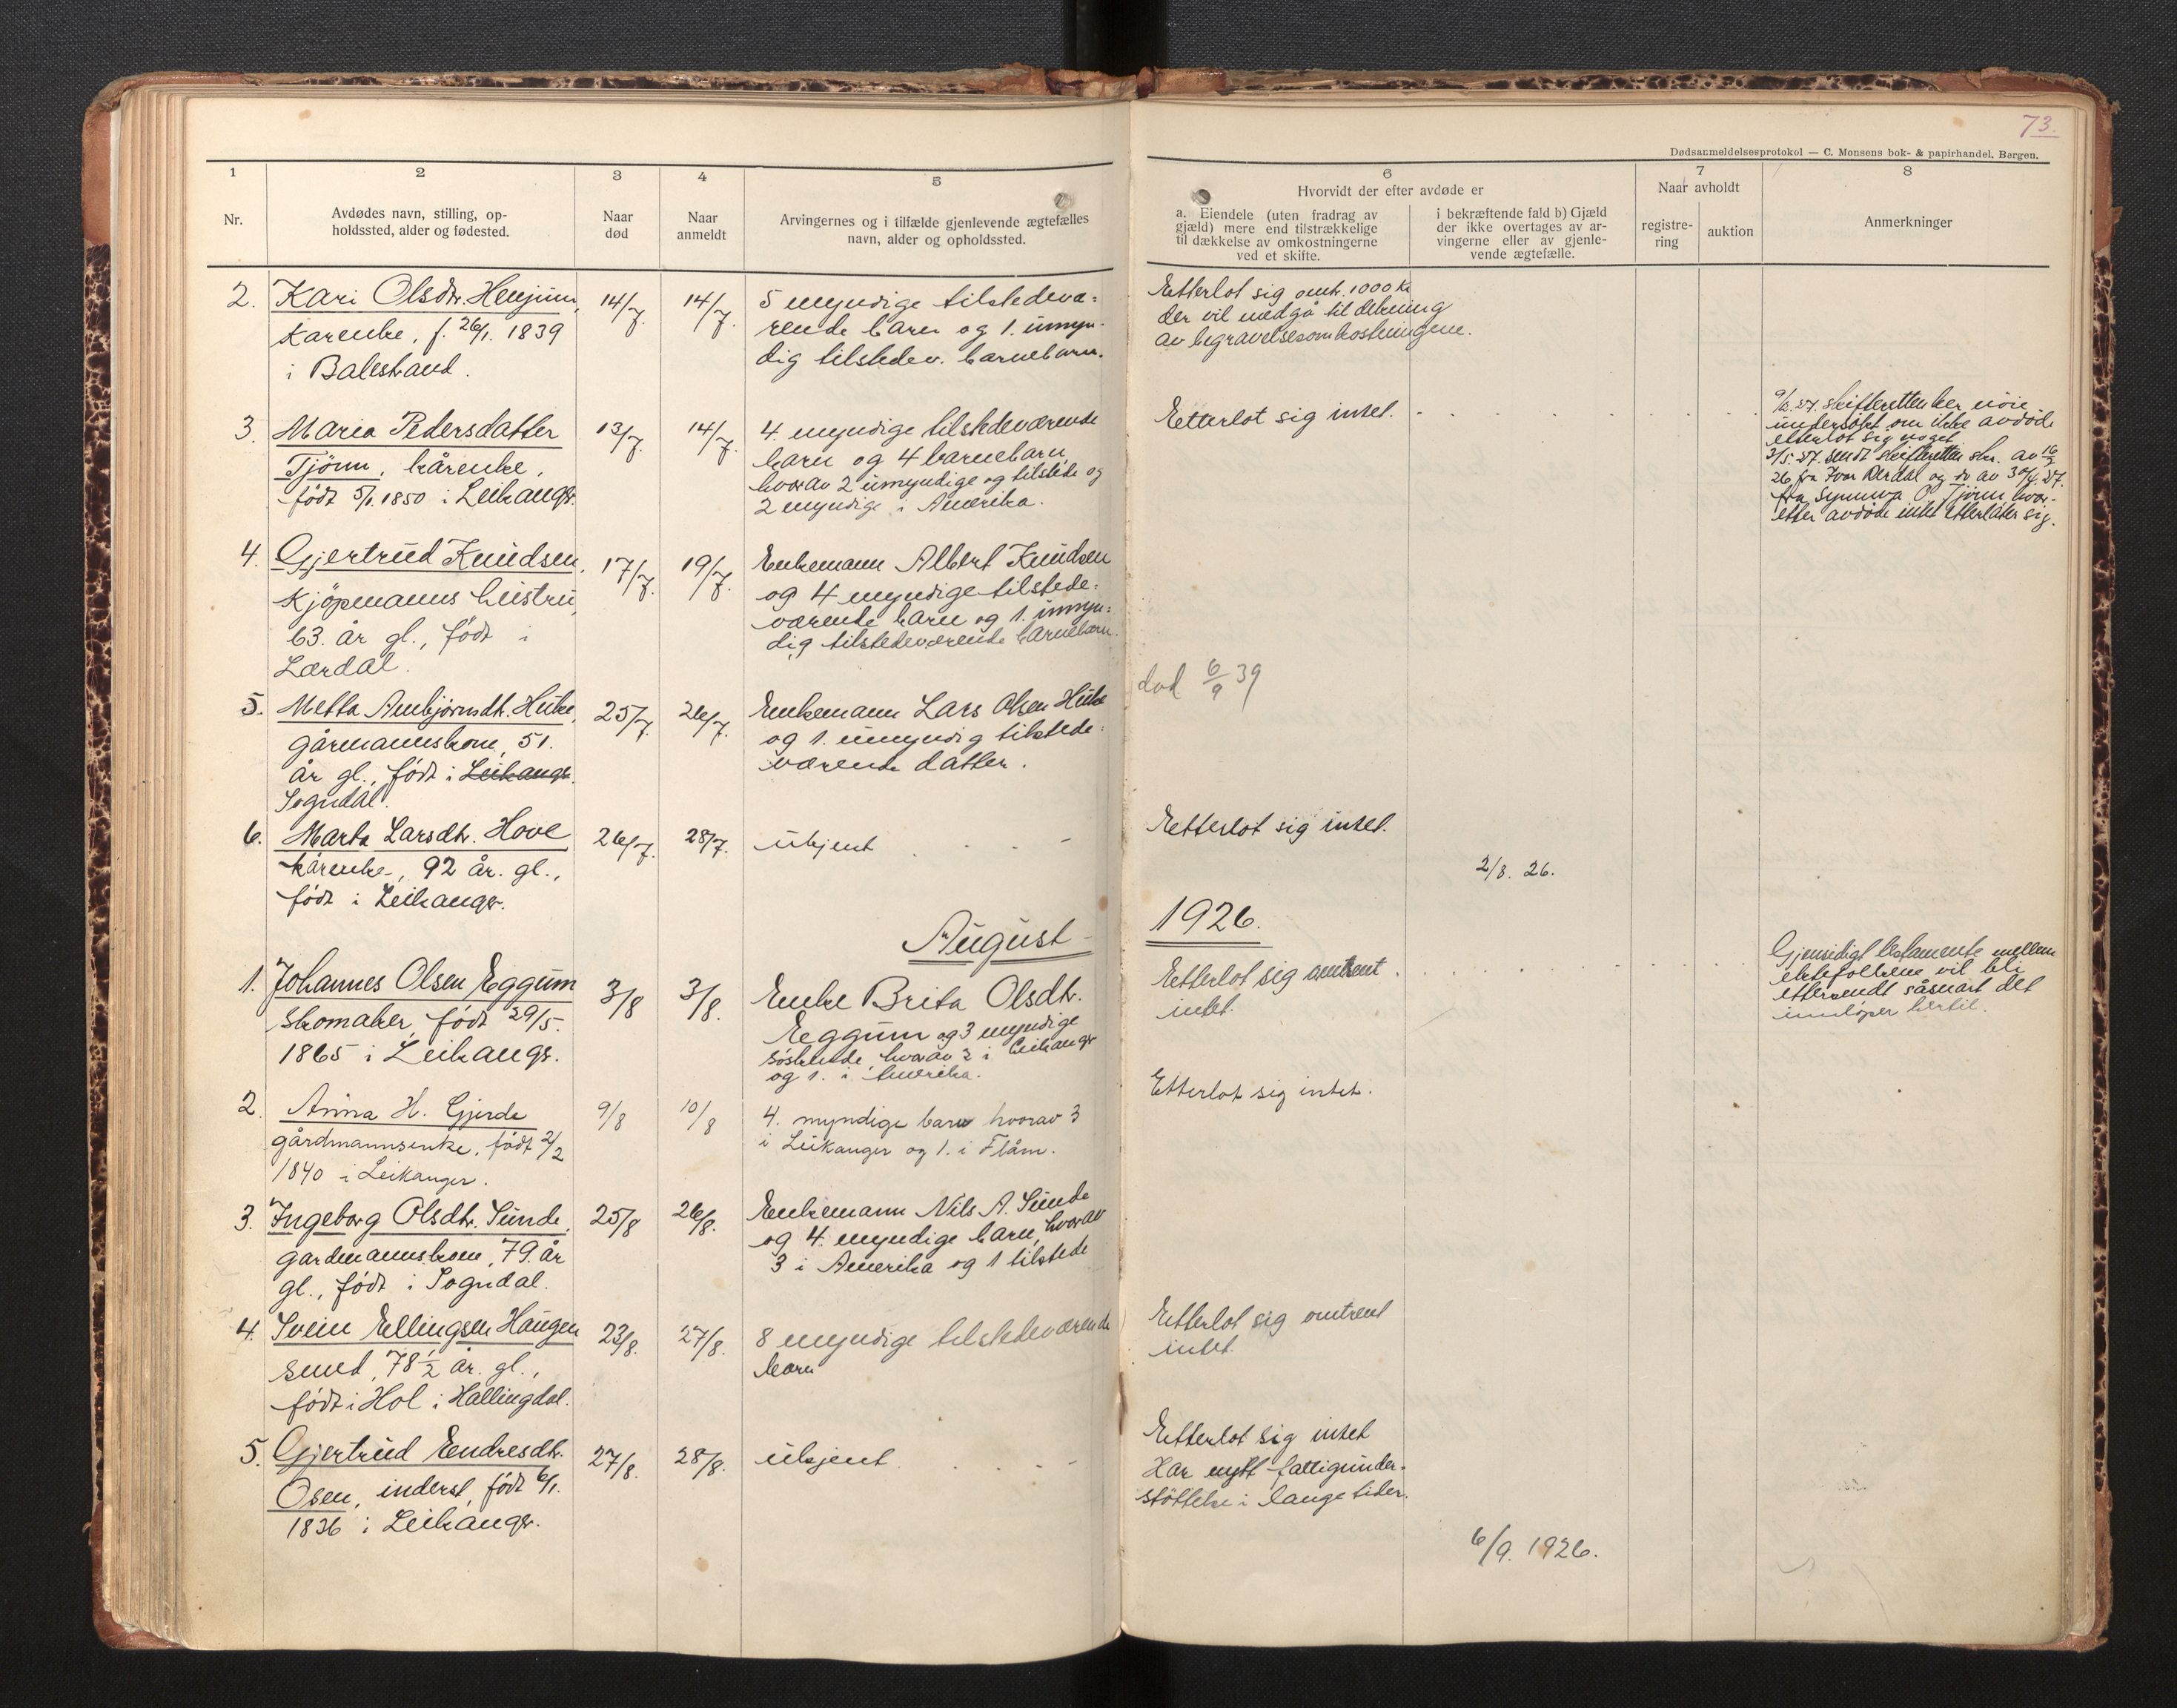 73.
Dødsanmeldelsesprotokol — C. Monsens bok- & papirhandel, Bergen.
1
Nr.
2
Avdødes navn, stilling, op-
holdssted, alder og fødested.
3
Naar
død
4
Naar
anmeldt
5
Arvingernes og i tilfælde gjenlevende ægtefælles
navn, alder og opholdssted.
6
Hvorvidt der efter avdøde er
a. Eiendele (uten fradrag av
gjæld) mere end tilstrækkelige
til dækkelse av omkostningerne
ved et skifte.
i bekræftende fald b) Gjæld
der ikke overtages av ar-
vingerne eller av gjenle-
vende ægtefælle.
7
Naar avholdt
registre-
ring
auktion
8
Anmerkninger
2. Kari Olsdtr. Henjum,
kårenke, f. 26/1. 1839
i Balestrand.
14/7. 14/7.
5 myndige tilstedevæ-
rende barn og 1. umyn-
dig tilstedev. barnebarn.
Etterlot sig omtr. 1000 kr
der vil medgå til dekning
av begravelsesomkostningene.
3. Maria Pedersdatter
Tjönn, kårenke,
født 5/1. 1850 i Leikanger.
13/7. 14/7.
4. myndige tilstedeværende
barn og 4 barnebarn,
hvorav 2 umyndige og tilstede og
2 myndige i Amerika.
Etterlot sig intet.
9/2. 27. skifteretten ber nöie
undersökt om ikke avdöde
etterlot sig noget.
3/5. 27. sendt skifteretten skr. av 16/7
26 fra Ivar Nerdal og do av 30/4. 27.
fra Synneva O. Tjönn, hvor-
etter avdöde intet etterlater sig.
4. Gjertrud Knudsen,
Kjöpmanns hustru,
63. år gl., födt i
Lærdal.
17/7. 19/7.
Enkemann Albert Knudsen
og 4 myndige tilstede-
værende barn og 1. umyn-
dig tilstedeværende barnebarn.
død 6/9 39
5. Metta Ambjörnsdtr. Huke,
gårmannskone, 51.
år gl., födt i Leikanger.
Sogndal.
25/7. 26/7.
Enkemann Lars Olsen Huke
og 1. umyndig tilstede-
værende datter.
6. Marta Larsdtr. Hove
kårenke, 92 år. gl.,
födt i Leikanger.
26/7. 28/7.
ukjent
Etterlot sig intet.
2/8. 26.
August 1926.
1. Johannes Olsen Eggum
skomaker, födt 29/5.
1865 i Leikanger.
3/8 3/8.
Enke Brita Olsdtr.
Eggum og 3 myndige
söskende, hvorav 2 i Leikanger
og 1. i Amerika.
Etterlot sig omtrent
intet.
Gjensidigt testamente mellem
ektefolkene vil bli
ettersendt såsnart det
innlöper hertil.
2. Anna H. Gjerde
gårdmannsenke, födt 2/2
1840 i Leikanger.
9/8 10/8
4. myndige barn hvorav 3
i Leikanger og 1. i Flåm.
Etterlot sig intet.
3. Ingeborg Olsdtr. Sunde,
gardmannskone, 79. år
gl., födt i Sogndal.
25/8 26/8.
Enkemann Nils A. Sunde
og 4. myndige barn, hvorav
3 i Amerika og 1 tilstede
4. Svein Ellingsen Haugen
smed, 78 1/2 år. gl.,
födt i Hol i Hallingdal.
23/8. 27/8.
8 myndige tilstedeværende
barn
Etterlot sig omtrent
intet.
5. Gjertrud Endresdtr.
Osen, inderst, födt 6/1.
1836 i Leikanger.
27/8. 28/8.
ukjent
Etterlot sig intet
Har nytt fattigunder-
stöttelse i lange tider.
6/9. 1926.